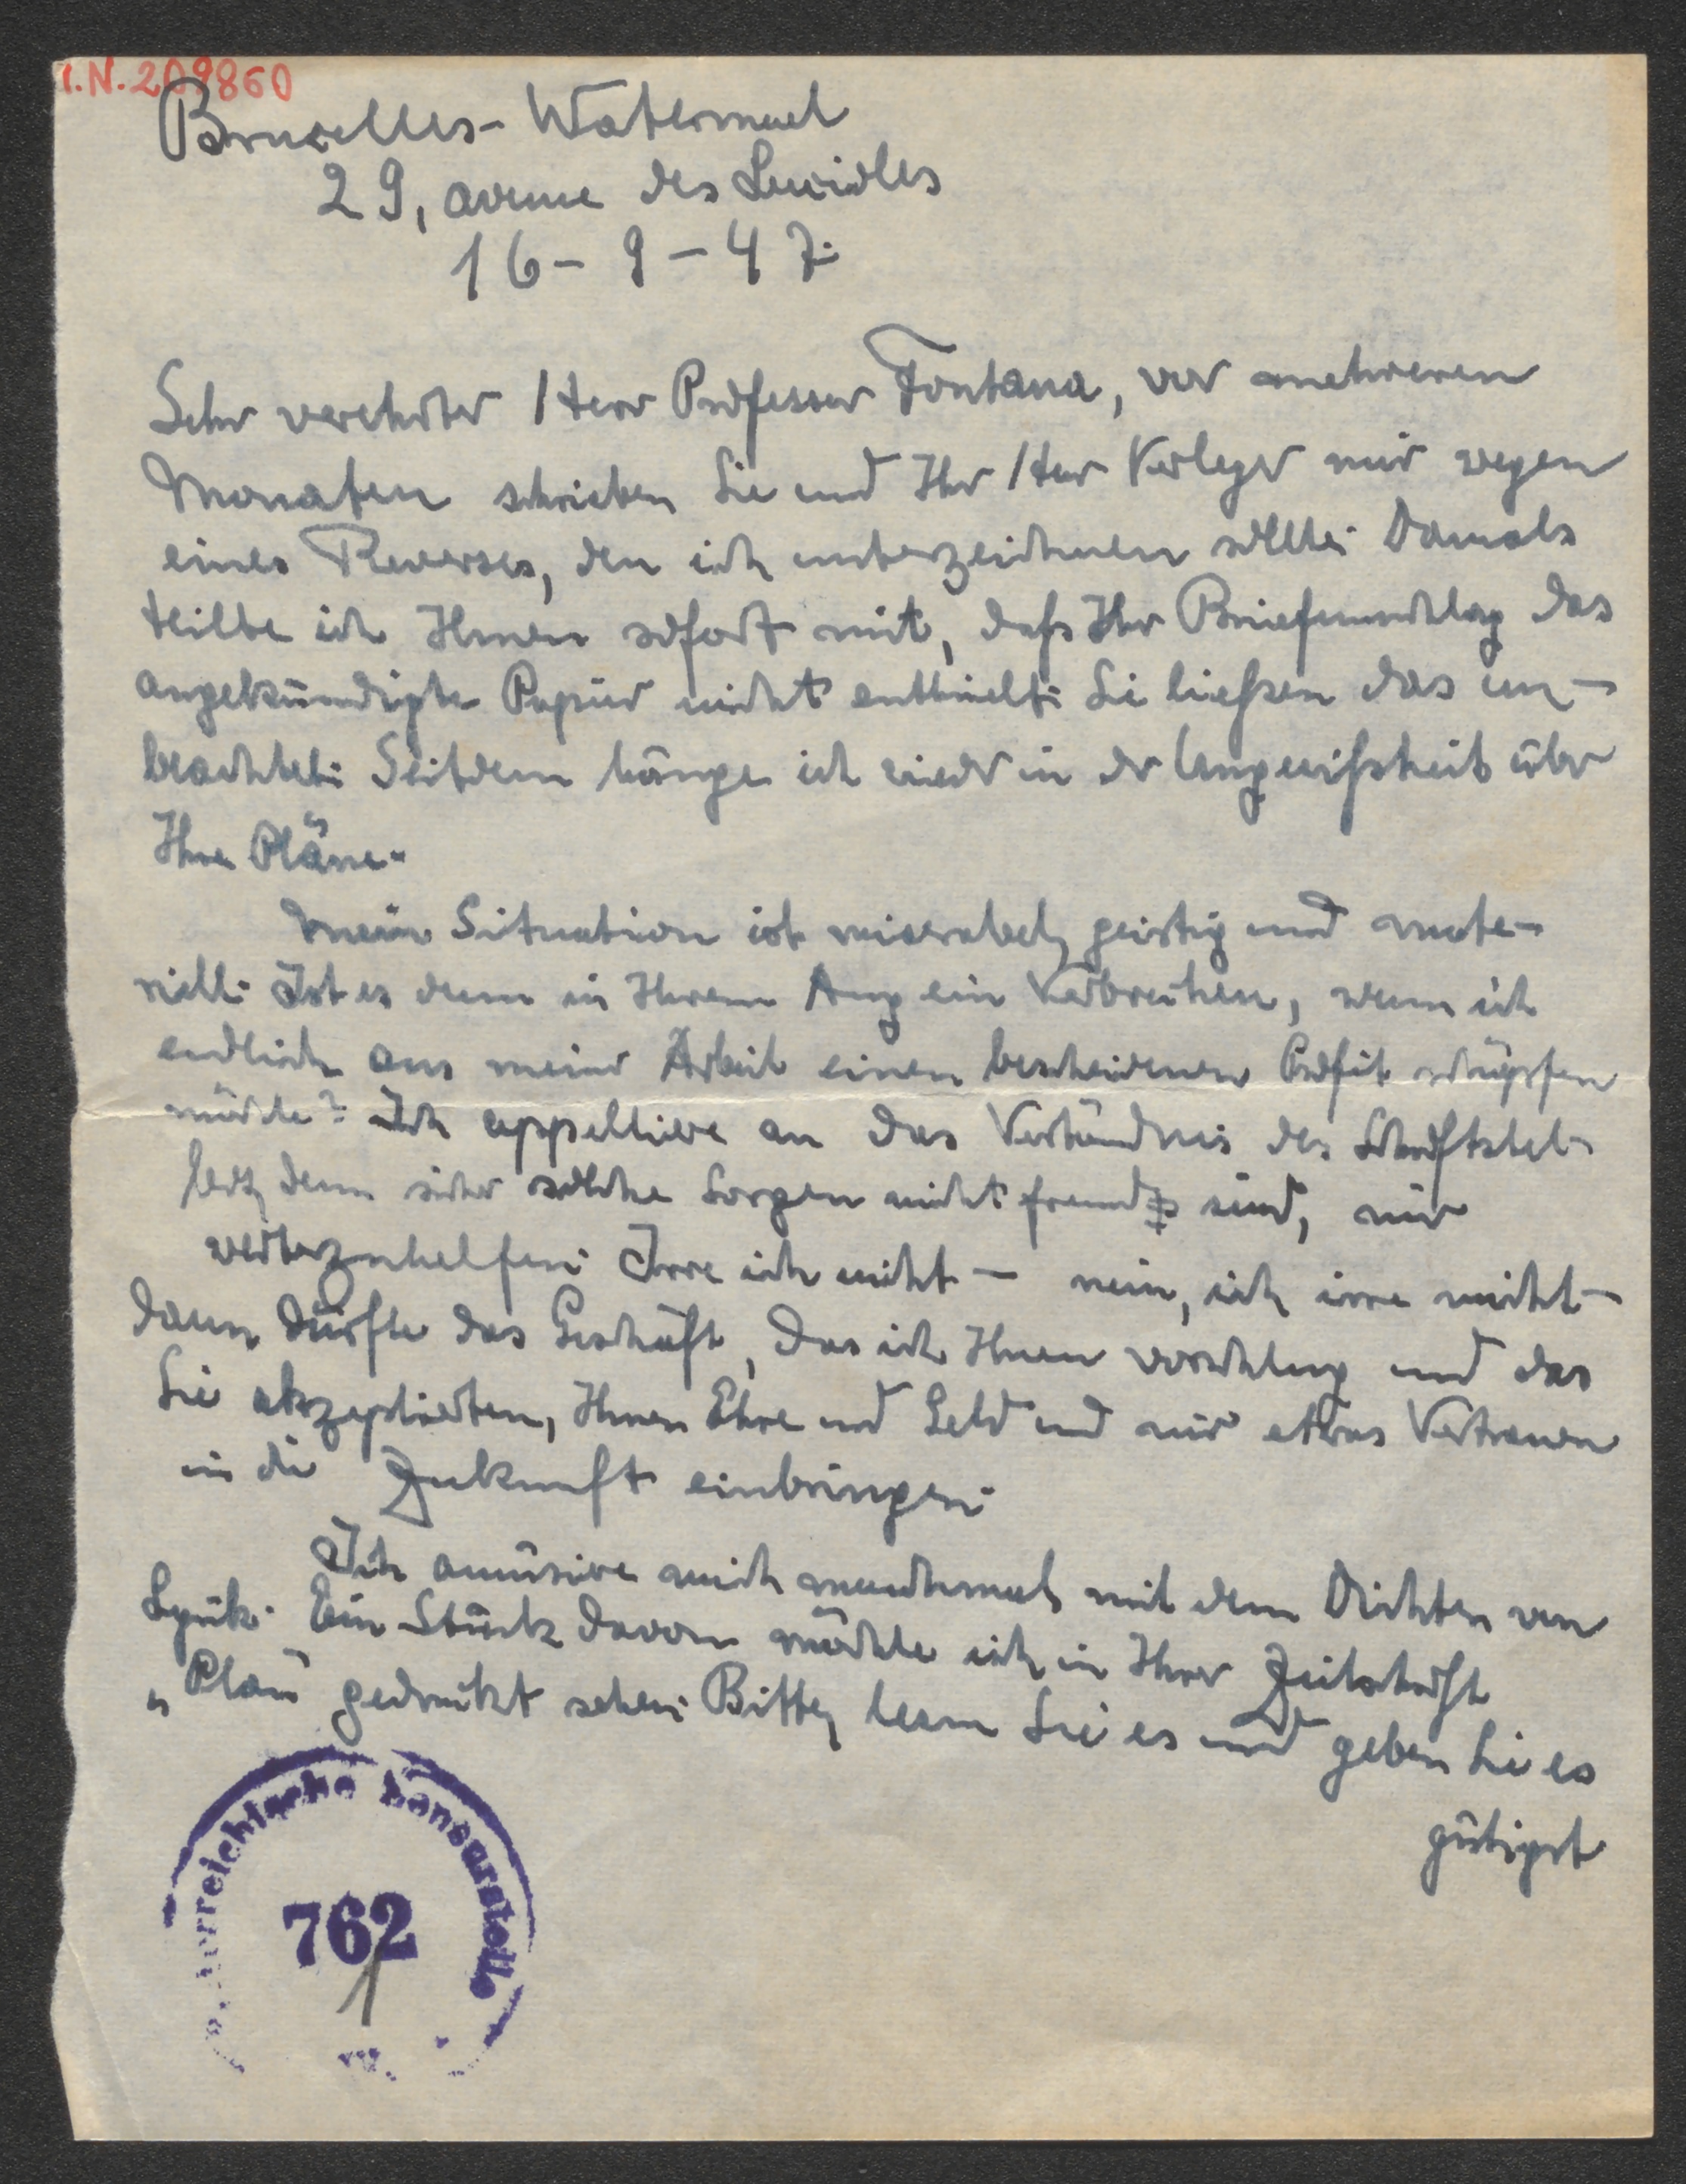 I.N. 209860
Bruxelles-Watermael
29, avenue des Lucioles
16-9-47.
Sehr verehrter Herr Professor Fontana, vor mehreren
Monaten schrieben Sie und Ihr Herr Verleger mir wegen
eines Reverses, den ich unterzeichnen sollte. Damals
teilte ich Ihnen sofort mit, dass Ihr Briefumschlag das
angekündigte Papier nicht enthielt. Sie liessen das un-
beachtet. Seitdem hänge ich wieder in der Ungewissheit über
Ihre Pläne.
Meine Situation ist miserabel, geistig und mate-
riell. Ist es denn in Ihrem Aug ein Verbrechen, wenn ich
endlich aus meiner Arbeit einen bescheidenen Profit schöpfen
möchte? Ich appelliere an das Verständnis des Schriftstel-
lers, dem sicher solche Sorgen nicht fremd sind, mir
weiterzuhelfen. Irre ich nicht — nein, ich irre nicht —
dann dürfte das Geschäft, das ich Ihnen vorschlug und das
Sie akzeptierten, Ihnen Ehre und Geld und mir etwas Vertrauen
in die Zukunft einbringen.
Ich amüsiere mich manchmal mit dem Dichten von
Lyrik. Ein Stück davon möchte ich in Ihrer Zeitschrift
„Plan" gedruckt sehen. Bitte, lesen Sie es und geben Sie es
gütigst
Österreichische Zensurstelle
762